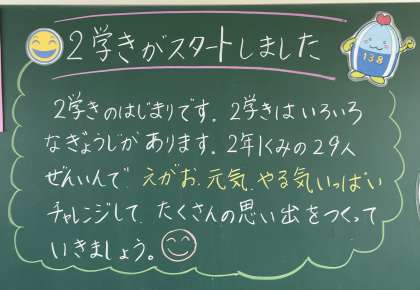 2学きがスタートしました
138
2学きのはじまりです。2学きはいろいろ
なぎょうじがあります。2年1くみの29人
ぜんいんで、えがお、元気、やる気いっぱい
チャレンジして、たくさんの思い出をつくって
いきましょう。